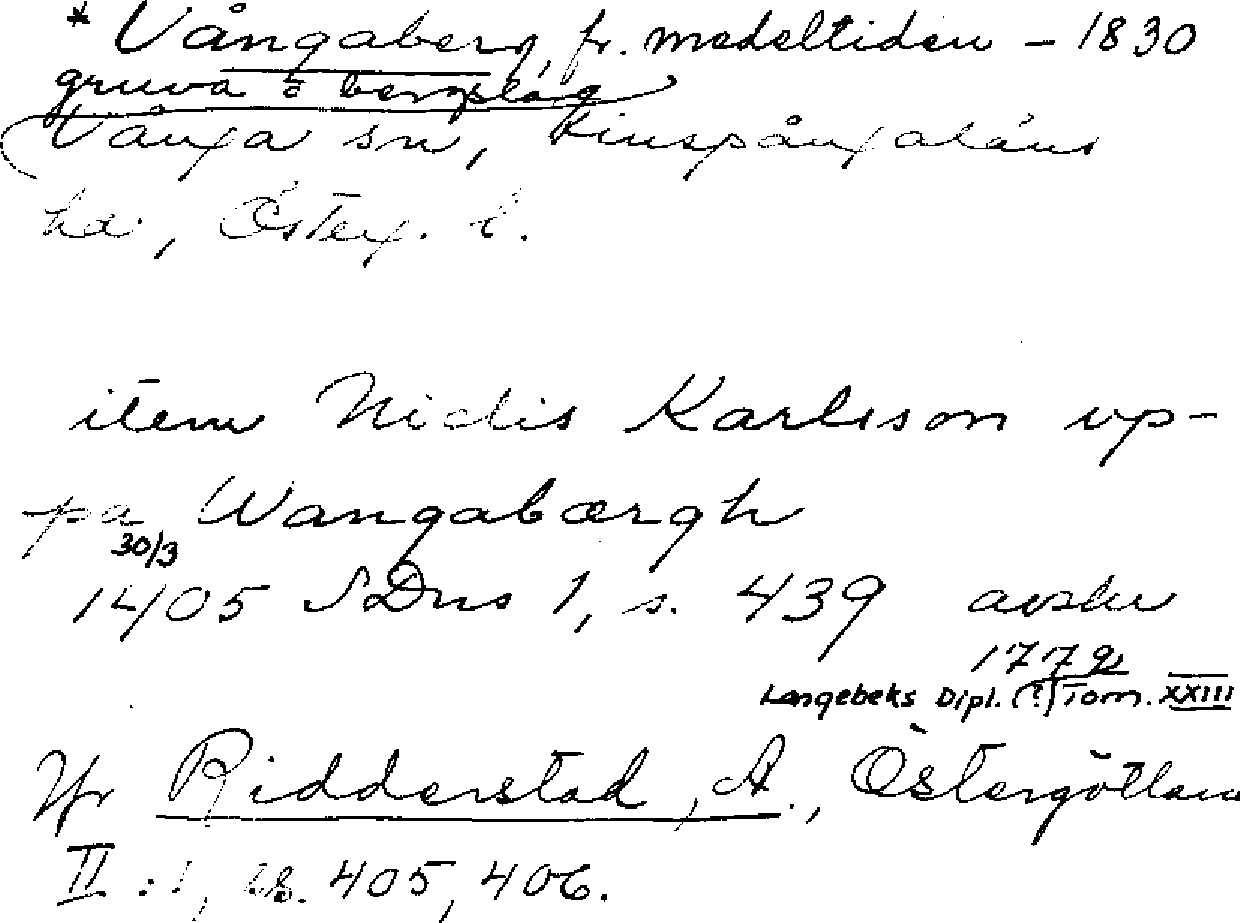 * Vångaberg, fr. medeltiden – 1830
gruva o bergslag
(Vånga sn, Finspångaläns
hd, Österg. l.
item Niclis Karlsson vp-
pa Wangabærgh
30/3
1405 SDns 1, s. 439 avskr
1772
Langebeks Dipl. (?) Tom. XXIII
Jfr Ridderstad, A., Östergötland
II:1, ss. 405, 406.